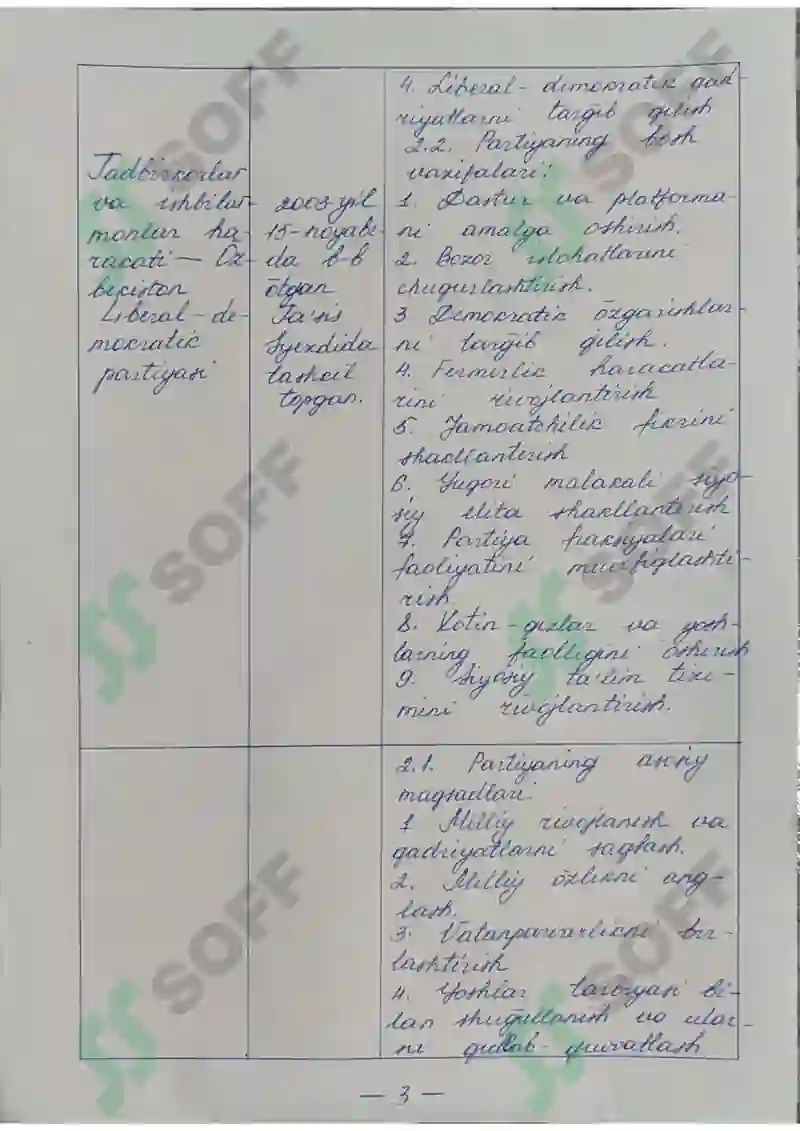 Tadbirkorlar
va ishbilar-
monlar ha-
racati — Oz-
beciston
Liberal-de-
mokratik
partiyasi
2003-yil
15-noyabr-
da b-b
õtgan
Ta'sis
Syezdida
tashcil
topgan.
4. Liberal-demokratik qad-
riyatlarni targ'ib qilish
2.2. Partiyaning bosh
vazifalari:
1. Dastur va platforma-
ni amalga oshirish.
2. Bozor islohatlarini
chuqurlashtirish.
3 Demokratic õzgarishlar-
ni targ'ib qilish.
4. Fermerlic haracatla-
rini rivojlantirish
5. Jamoatchilik fikrini
shakllantirish
6. Yuqori malakali siyo-
siy elita shakllantirish
7. Partiya fraksiyalari
faoliyatini muvofiqlashti-
rish.
8. Xotin-qizlar va yosh-
larning faolligini oshirish
9. Siyosiy ta'lim tizi-
mini rivojlantirish.
2.1. Partiyaning asosiy
maqsadlari:
1 Milliy rivojlanish va
qadriyatlarni saqlash.
2. Milliy õzlikni ang-
lash.
3. Vatanparvarlicni bir-
lashtirish
4. Yoshlar tarbiyasi bi-
lan shug'ullanish va ular-
ni qullab-quvvatlash
— 3 —
SOFF
SOFF
SOFF
SOFF
SOFF
SOFF